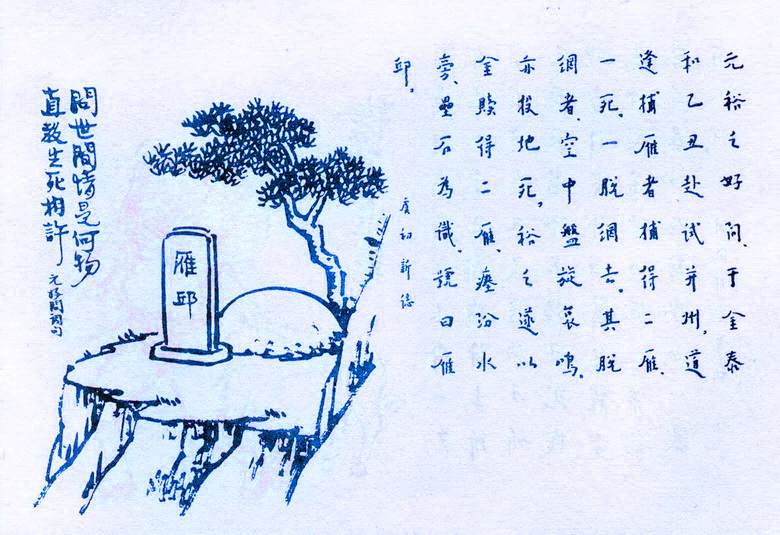 元裕之好問、于金泰
和乙丑赴試并州，道
逢捕雁者捕得二雁，
一死，一脫網去。其脫
網者，空中盤旋哀鳴，
亦投地死，裕之遂以
金贖得二雁，瘞汾水
旁，壘石為識，號曰雁
邱。
虞初新志
雁邱
問世間情是何物
直教生死相許
元好問詞句